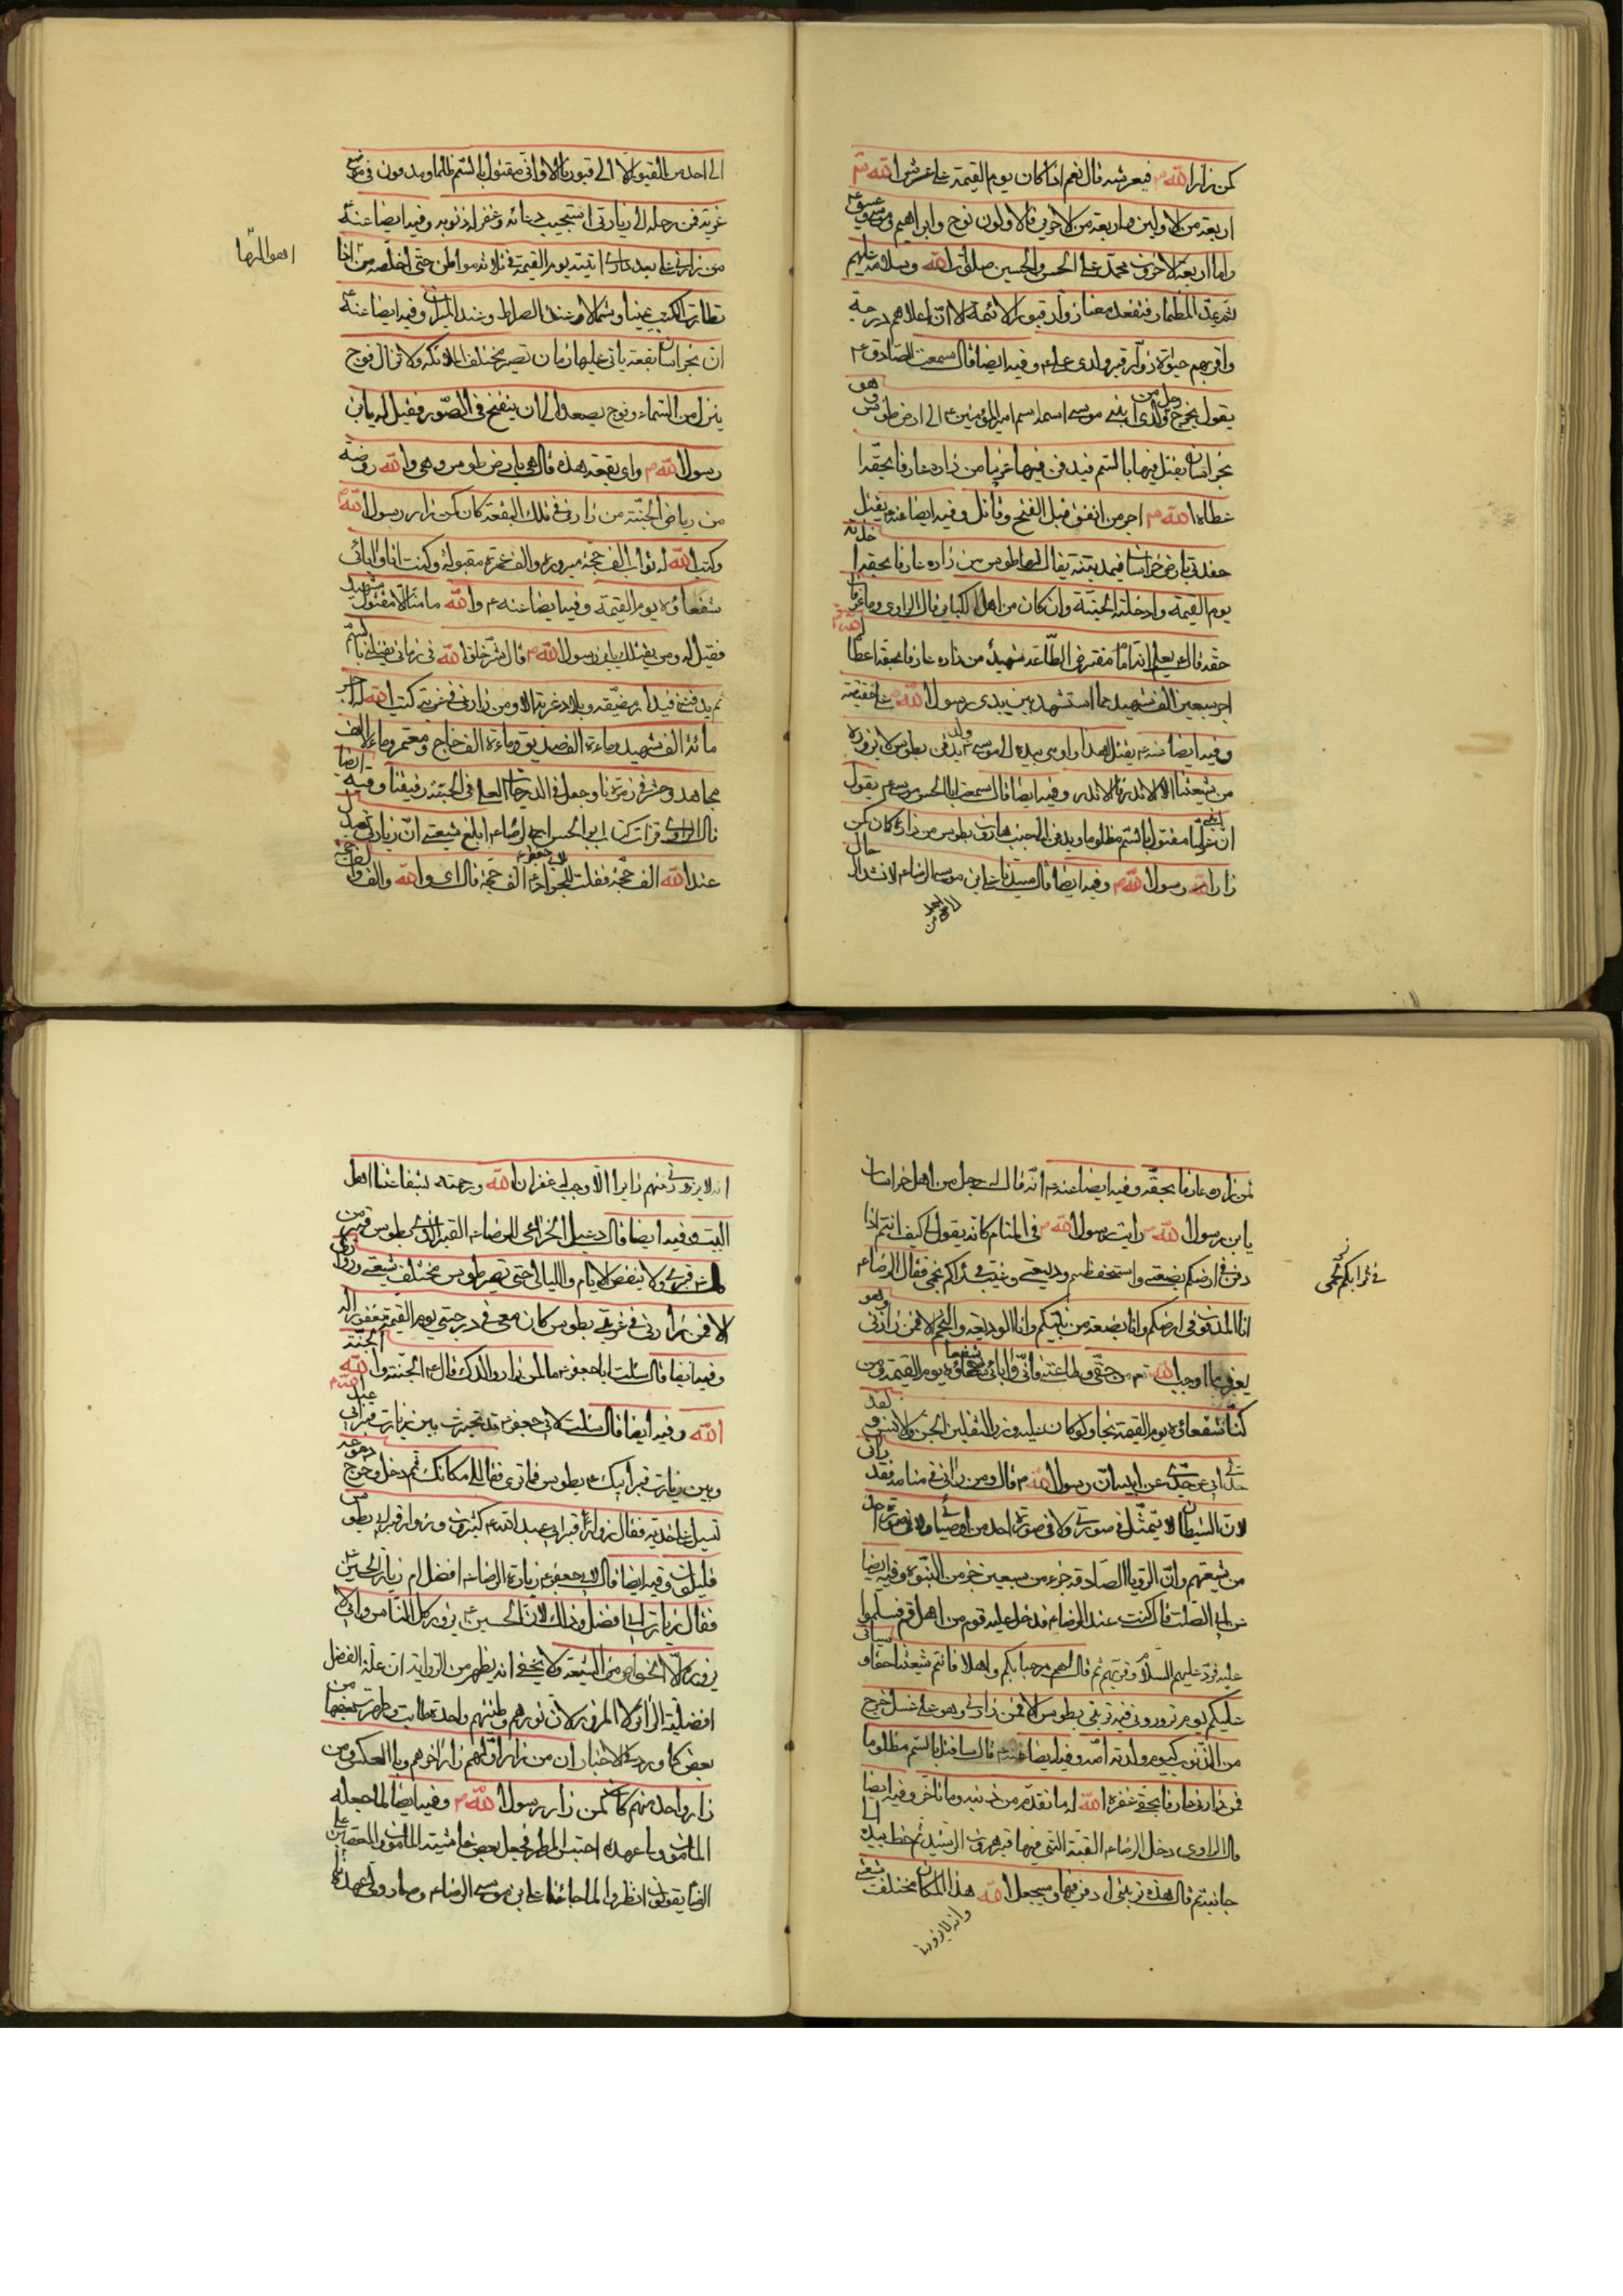 كمن زار الله فى عرشه قال نعم اذا كان يوم القيمة على عرش الله
اربعة من الاولين واربعة من الاخرين فالاولون نوح وابراهيم وموسى وعيسى
واما اربعة الاخرون محمد وعلى والحسن والحسين صلوات الله وسلامه عليهم
ثم يمد المطمار فتقعد معنا زوار قبور الائمة الا ان اعلاهم درجة
واقربهم حبوة زوار قبر ولدى على وفيه ايضا قال سمعت الصادق ع
يقول يخرج رجل من ولدى ابنى موسى اسمه اسم امير المؤمنين ع الى ارض طوس وهو
بخراسان يقتل فيها بالسم فيدفن فيها غريبا من زاره عارفا بحقه ا
عطاه الله اجر من انفق قبل الفتح وقاتل وفيه ايضا عنه ع يقتل
حفدتى بارض خراسان فى مدينة يقال لها طوس من زاره عارفا بحقه ا خذته
يوم القيمة وادخلته الجنة وان كان من اهل الكبائر قال الراوى وما عرفان
حقه قال يعلم انه امام مفترض الطاعة شهيد من زاره عارفا بحقه اعطاه الله
اجر سبعين الف شهيد مما استشهد بين يدى رسول الله على حقيقة
وفيه ايضا عنه ع يقتل لهذا واومى بيده الى موسى ع ولد يدفن بطوس لا يزوره
من شيعتنا الا الاندر فالاندر وفيه ايضا قال سمعت ابا الحسن موسى ع يقول
ان ابنى عليا مقتول بالسم مظلوما ويدفن الى جنب هارون بطوس من زاره كان كمن
زار رسول الله وفيه ايضا قال سيدنا على ابن موسى الرضا ع لا تشد الرحال
الى احد من القبور الا الى قبورنا الا وانى مقتول بالسم ظلما ومدفون فى موضع
غربة فمن رحل الى زيارتى استجيب دعائه وغفر له ذنوبه وفيه ايضا عنه ع
من زارنى على بعد دارى اتيته يوم القيمة فى ثلاثة مواطن حتى اخلصه من اذا
اهوالها
تطائرت الكتب يمينا وشمالا وعند الصراط وعند الميزان وفيه ايضا عنه ع
ان بخراسان بقعة ياتى عليها زمان تصير مختلف الملائكة ولا تزال فوج
ينزل من السماء وفوج يصعد الى ان ينفخ فى الصور فقيل له يابن
رسول الله واى بقعة هذه قال هى بارض طوس وهى والله روضة
من رياض الجنة من زارنى فى تلك البقعة كان كمن زار رسول الله
وكتب الله له ثواب الف حجة مبرورة والف عمرة مقبولة وكنت انا وابائى
شفعاؤه يوم القيمة وفيه ايضا عنه ع والله ما منا الا مقتول شهيد
فقيل له ومن يقتلك يابن رسول الله قال شر خلق الله فى زمانى يقتلنى بالسم
ثم يدفننى فى دار مضيقة وبلاد غربة الا ومن زارنى فى غربتى كتب الله له اجر
مائة الف شهيد ومائة الف صديق ومائة الف حاج ومعتمر ومائة الف
مجاهد وحشر فى زمرتنا وجعل فى الدرجات العلى فى الجنة رفيقنا وفيه ايضا
قال الراوى قرات كتاب ابى الحسن الرضا ع ابلغ شيعتى ان زيارتى تعدل
عند الله الف حجة فقلت لابى جعفر الجواد ع الف حجة قال اى والله والف الف حجة
لمن زاره عارفا بحقه وفيه ايضا عنه ع انه قال له رجل من اهل خراسان
يابن رسول الله رايت رسول الله فى المنام كانه يقول كيف انتم اذا
دفن فى ارضكم بضعتى واستحفظتم وديعتى وغيب فى ثراكم نجمى فقال الرضا ع
فى ترابكم نجمى
انا المدفون فى ارضكم وانا بضعة من نبيكم وانا الوديعة والنجم الا فمن زارنى وهو
يعرف ما اوجب الله من حقى وطاعتى فانى وابائى شفعاؤه يوم القيمة ومن
كنا شفعائه يوم القيمة نجا ولو كان عليه وزر الثقلين الجن والانس ولقد
حدثنى ابى عن جدى عن ابيه ان رسول الله قال ومن رانى فى منامه فقد رانى
لان الشيطان لا يتمثل فى صورتى ولا فى صورة احد من اوصيائى ولا فى صورة احد
من شيعتهم وان الرؤيا الصادقة جزء من سبعين جزء من النبوة وفيه ايضا
عن ابى الصلت قال كنت عند الرضا ع فدخل عليه قوم من اهل قم فسلموا
عليه فرد عليهم السلام وقربهم ثم قال لهم مرحبا بكم واهلا فانتم شيعتنا حقا وسياتى
عليكم يوم تزورونى فيه تربتى بطوس الا فمن زارنى وهو على غسل خرج
من الذنوب كيوم ولدته امه وفيه ايضا عنه ع قال ساقتل بالسم مظلوما
فمن زارنى عارفا بحقى غفره الله له ما تقدم من ذنبه وما تاخر وفيه ايضا
قال الراوى دخل الرضا ع القبة التى فيها قبر هرون الرشيد ثم خط بيده الى
جانبه ثم قال هذه تربتى ادفن فيها وسيجعل الله هذا المكان مختلف شيعتى
انه لا يزورنى منهم زايرا الا وجب له غفران الله ورحمته بشفاعتنا اهل
البيت وفيه ايضا قال دعبل الخزاعى للرضا ع القبر الذى بطوس قبر من
قال ع قبرى ولا ينقض الايام والليالى حتى تصير طوس مختلف شيعتى وزوارى
الا فمن زارنى فى غربتى بطوس كان معى فى درجتى يوم القيمة مغفورا له
وفيه ايضا قال سئلت ابا جعفر ع ما لمن زار والدك قال ع الجنة والله الجنة
الله وفيه ايضا قال سئلت لابى جعفر ع قد تحيرت بين زيارت قبر ابى عبد
وبين زيارت قبر ابيك ع بطوس فما ترى فقال لى مكانك ثم دخل وخرج ودموعه
تسيل على خديه فقال زوار قبر ابى عبد الله ع كثيرون وزوار قبر ابى بطوس
قليلون وفيه ايضا قال لابى جعفر ع زيارة الرضا ع افضل ام زيارت الحسين ع
فقال زيارت ابى افضل وذلك لان الحسين ع يزوره كل الناس وابى لا
يزوره الا الخواص من الشيعة ولا يخفى انه يظهر من الرواية ان علة الفضل
افضلية الزائر لا المزور لان نورهم وطينتهم واحدة طابت وطهرت بعضها من
بعض كما ورد فى الاخبار ان من زار اولهم زار اخرهم وبالعكس ومن
زار واحد منهم كان كمن زار رسول الله وفيه ايضا لما جعله
المامون ولى عهده احتبس المطر فجعل بعض حاشية المامون والمتعصبين على
الرضا يقولون انظروا لما جائنا على ابن موسى الرضا ع وصار ولى عهدنا